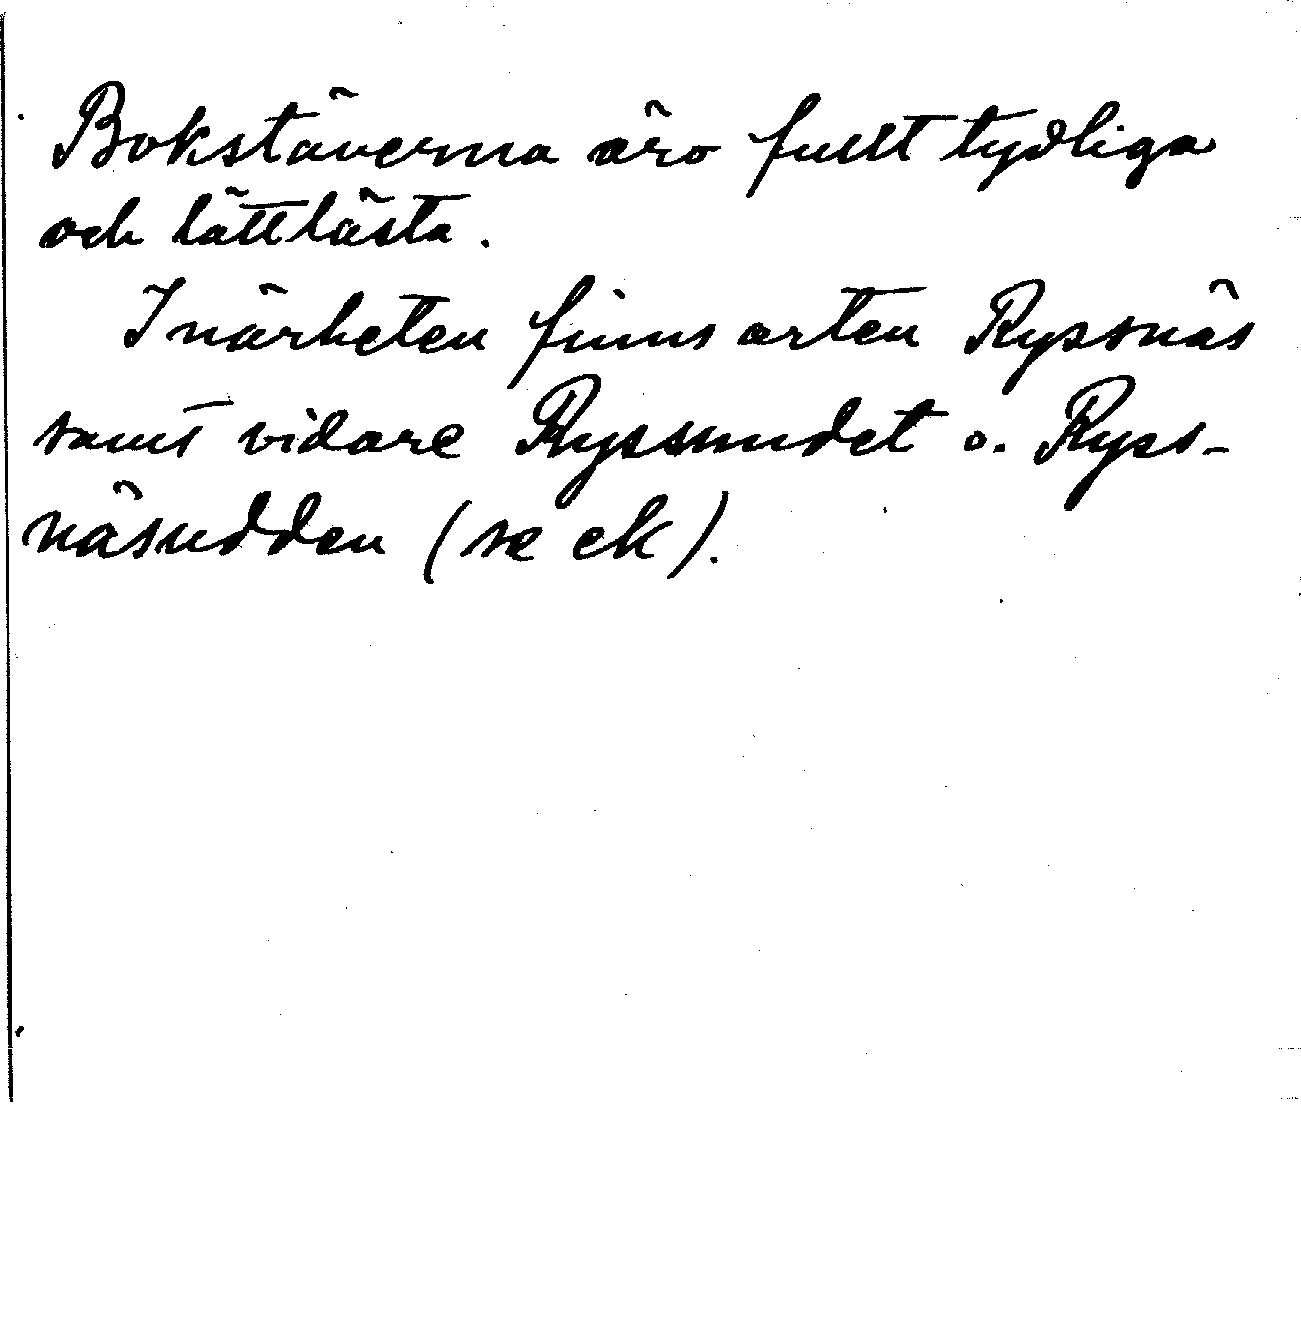 Bokstäverna äro fullt tydliga
och lättlästa.
I närheten finns orten Ryssnäs
samt vidare Ryssundet o. Ryss-
näsudden (se ek).